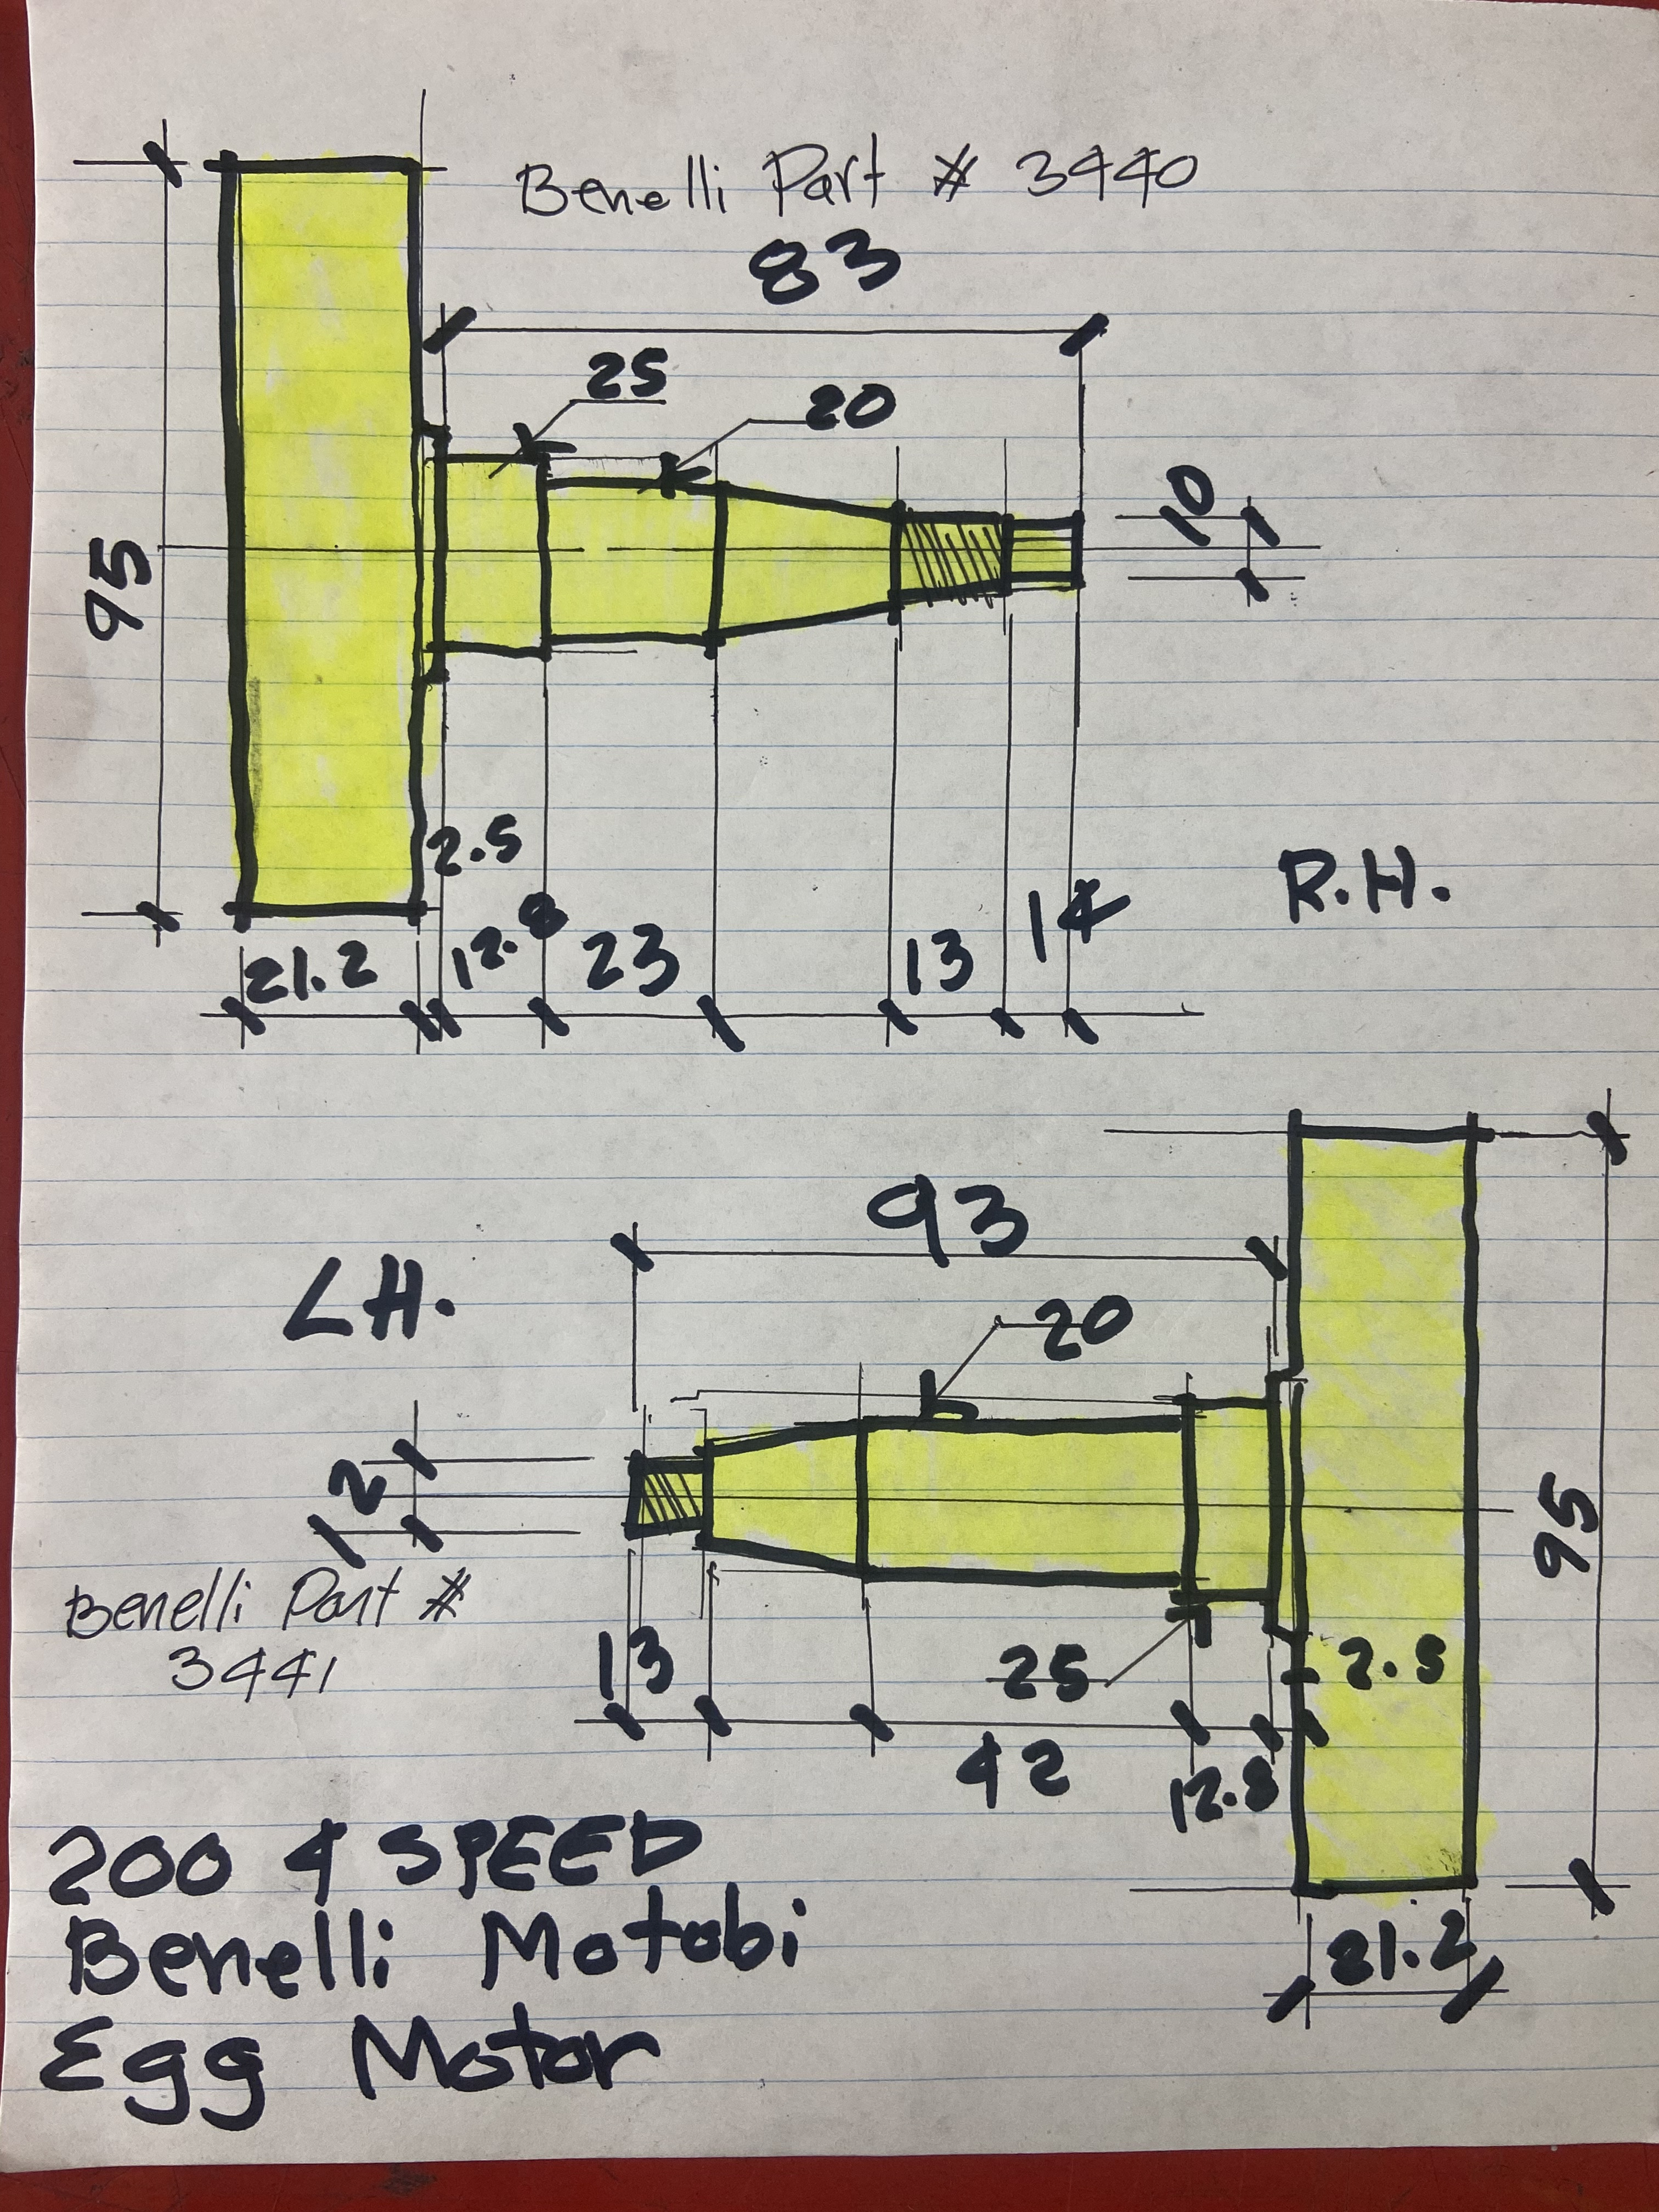 Benelli Part # 3440
83
25
20
10
95
2.5
R.H.
21.2
12.8
23
13
14
93
LH.
20
12
95
Benelli Part #
3441
13
25
2.5
42
12.8
200 4 SPEED
Benelli Motobi
21.2
Egg Motor